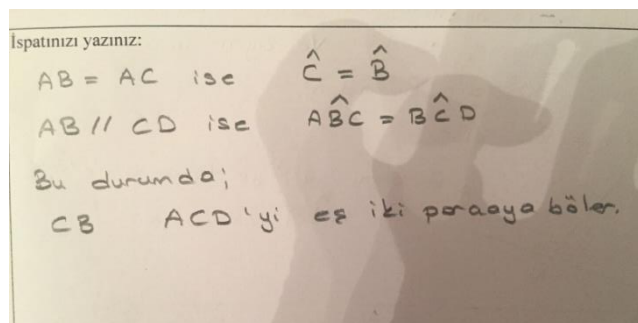 İspatınızı yazınız:
AB = AC ise Ĉ = B̂
AB // CD ise AB̂C = BĈD
Bu durumda;
CB ACD'yi eş iki parçaya böler.